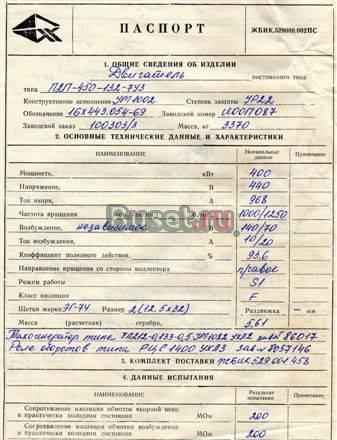 ПАСПОРТ ЖБИК.529000.002ПС
1. ОБЩИЕ СВЕДЕНИЯ ОБ ИЗДЕЛИИ
Двигатель постоянного тока
типа П2П-450-132-7У3
Конструктивное исполнение УМ1002 Степень защиты УР22
Обозначение 1БХ443.054-69 Заводской номер
Заводской заказ 100303/3 Масса, кг 3370
2. ОСНОВНЫЕ ТЕХНИЧЕСКИЕ ДАННЫЕ И ХАРАКТЕРИСТИКИ
НАИМЕНОВАНИЕ Номинальные данные Примечание
Мощность, кВт 400
Напряжение, В 440
Ток якоря, А 968
Частота вращения об/мин 1000/1250
Возбуждение, независимое 140/70
Ток возбуждения, А 10/20
Коэффициент полезного действия, % 93,6
Направление вращения со стороны коллектора правое
Режим работы S1
Класс изоляции F
Щетки марки ЭГ-74 Размер 2(12,5х32) Раздвижка — мм
Масса (расчетная) серебра, 5,61
Тахогенератор типа УХЛ2 зав № 86017
Реле оборотов типа РЦС 1400 УХЛ3 зав № 8057146
3. КОМПЛЕКТ ПОСТАВКИ ЖБИК.529 001 458
4. ДАННЫЕ ИСПЫТАНИЯ
НАИМЕНОВАНИЕ Результат испытания Примечание
Сопротивление изоляции обмотки якорной цепи
в практически холодном состоянии МОм 200
Сопротивление изоляции обмотки возбуждения
в практически холодном состоянии МОм 200
Ruset.ru